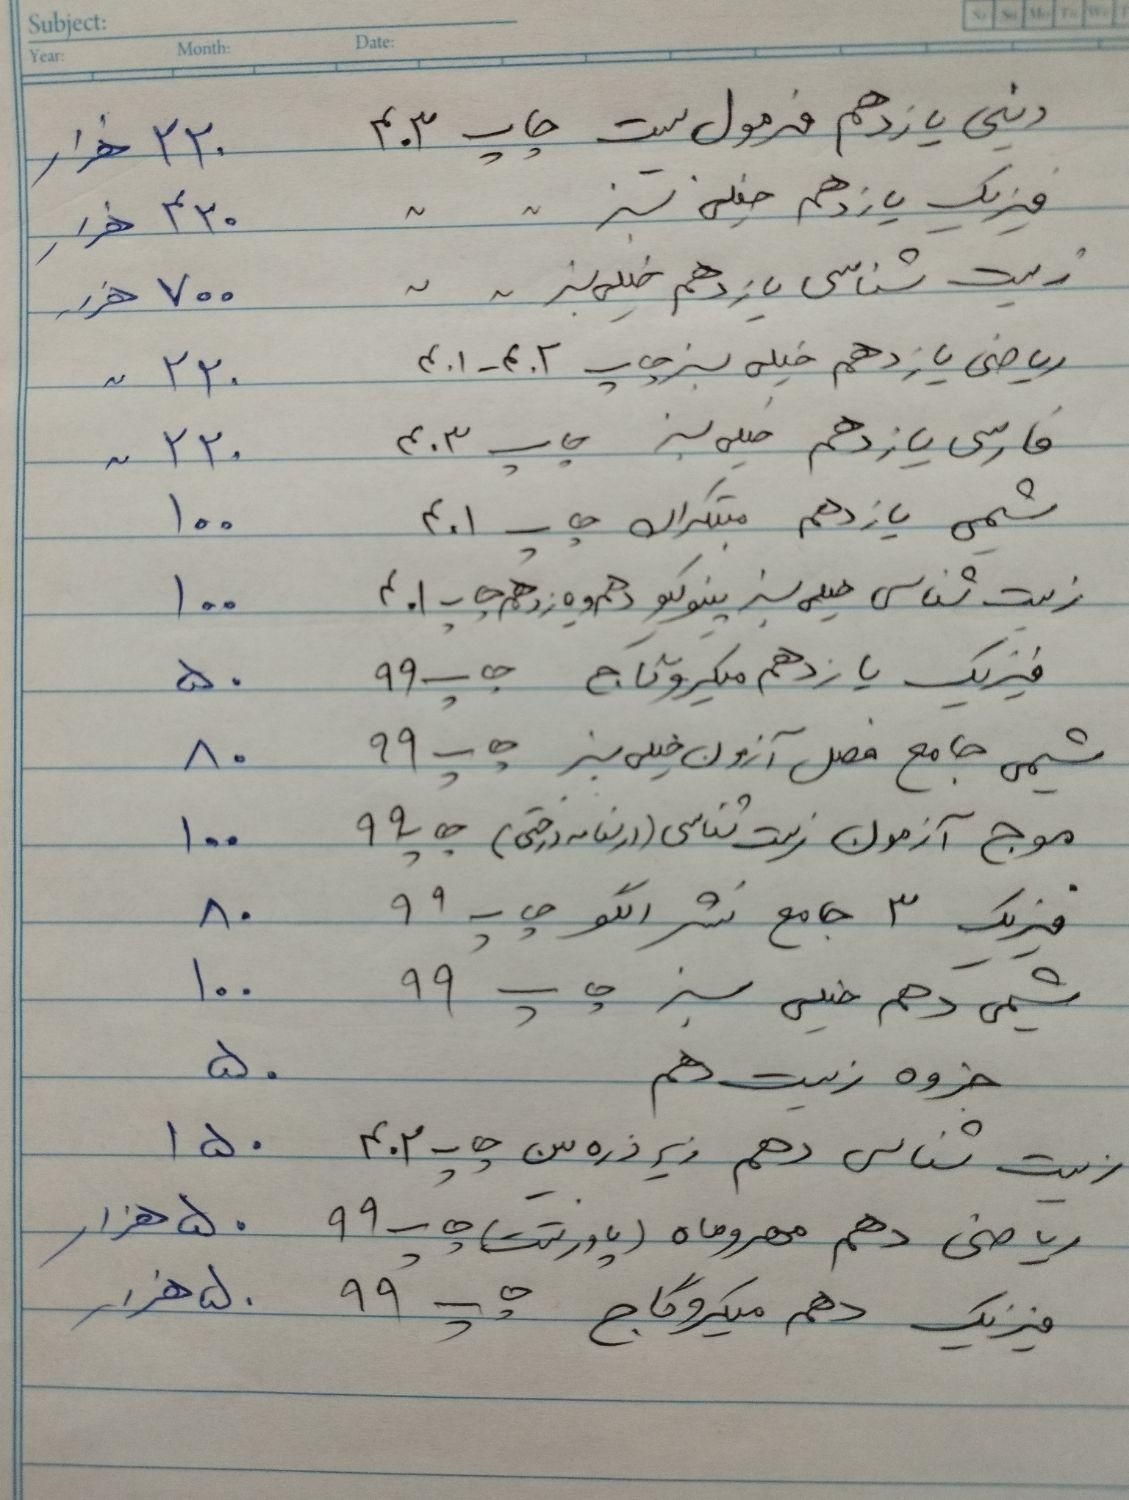 Subject:
Year: Month: Date:
دینی یازدهم فرمول بیست چاپ ۴۰۳ ۲۲۰ هزار
فیزیک یازدهم خیلی سبز ~ ~ ۴۲۰ هزار
زیست شناسی یازدهم خیلی سبز ~ ~ ۷۰۰ هزار
ریاضی یازدهم خیلی سبز چاپ ۴۰۲-۴۰۱ ۲۲۰ ~
فارسی یازدهم خیلی سبز چاپ ۴۰۳ ۲۲۰ ~
شیمی یازدهم مبتکران چاپ ۴۰۱ ۱۰۰
زیست شناسی خیلی سبز پینوکیو دهم و یازدهم چاپ ۴۰۱ ۱۰۰
فیزیک یازدهم میکروگاج چاپ ۹۹ ۵۰
شیمی جامع فصل آزمون خیلی سبز چاپ ۹۹ ۸۰
موج آزمون زیست شناسی (درسنامه درختی) چاپ ۹۹ ۱۰۰
فیزیک ۳ جامع نشر الگو چاپ ۹۹ ۸۰
شیمی دهم خیلی سبز چاپ ۹۹ ۱۰۰
جزوه زیست دهم ۵۰
زیست شناسی دهم زیر ذره بین چاپ ۴۰۲ ۱۵۰
ریاضی دهم مهروماه (پاورتست) چاپ ۹۹ ۵۰ هزار
فیزیک دهم میکروگاج چاپ ۹۹ ۵۰ هزار